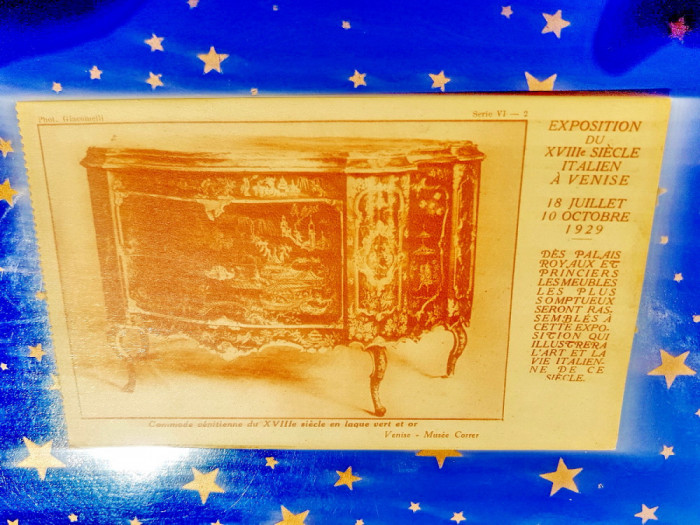 Phot. Giacomelli
Serie VI — 2
EXPOSITION
DU
XVIIIe SIÈCLE
ITALIEN
À VENISE
18 JUILLET
10 OCTOBRE
1929
DÈS PALAIS
ROYAUX ET
PRINCIERS
LES MEUBLES
LES PLUS
SOMPTUEUX
SERONT RAS-
SEMBLÉS À
CETTE EXPO-
SITION QUI
ILLUSTRERA
L'ART ET LA
VIE ITALIEN-
NE DE CE
SIÈCLE.
Commode vénitienne du XVIIIe siècle en laque vert et or
Venise - Musée Correr